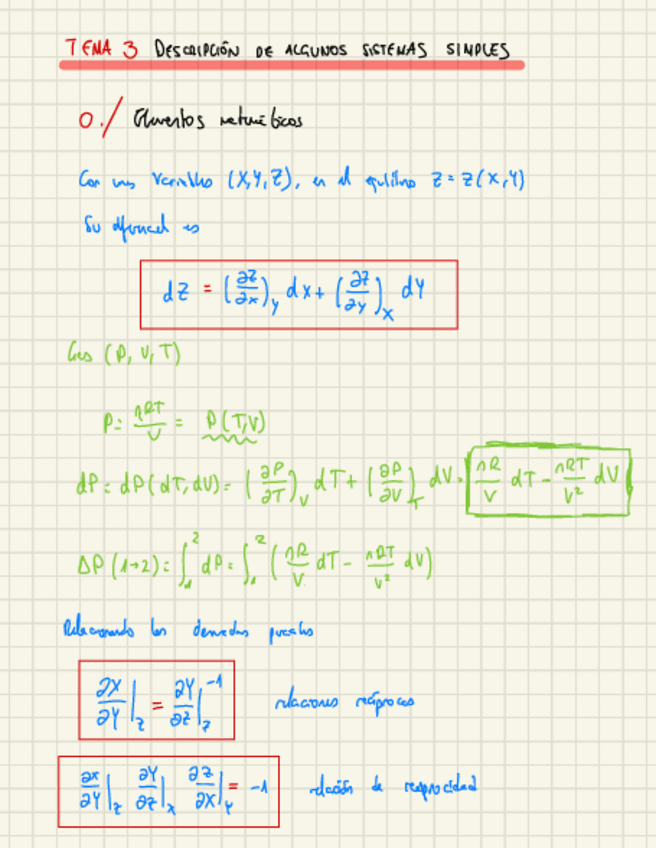 TEMA 3 DESCRIPCIÓN DE ALGUNOS SISTEMAS SIMPLES
0./ Elementos matemáticos
Con las variables (X,Y,Z), en el equilibrio Z = Z(X,Y)
Su diferencial es
dZ = (∂Z/∂X)_Y dX + (∂Z/∂Y)_X dY
Gas (P, V, T)
P = nRT/V = P(T,V)
dP = dP(dT, dV) = (∂P/∂T)_V dT + (∂P/∂V)_T dV = nR/V dT - nRT/V² dV
ΔP (1→2) = ∫₁² dP = ∫₁² (nR/V dT - nRT/V² dV)
Relacionando las derivadas parciales
∂X/∂Y|_Z = ∂Y/∂Z|_Z⁻¹ relaciones recíprocas
∂X/∂Y|_Z ∂Y/∂Z|_X ∂Z/∂X|_Y = -1 relación de reciprocidad